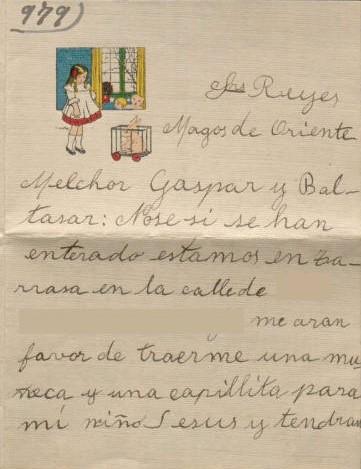 979)
Srs Reyes
Magos de Oriente
Melchor Gaspar y Bal-
tasar: Nose si se han
enterado estamos en ta-
rrasa en la calle de
y me aran
favor de traerme una mu-
neca y una capillita para
mi niño Jesus y tendran